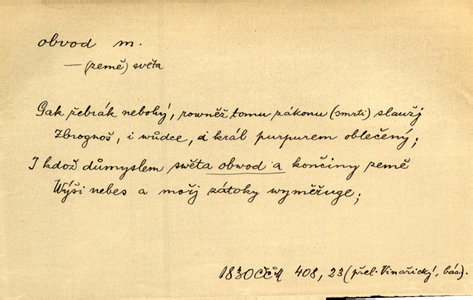 obvod m.
— (země) světa
Gak žebrák nebohý, rowněž tomu zákonu (smrti) slaužj
Zbrognoš, i wůdce, a král purpurem oblečený;
I kdož důmyslem swěta obwod a končiny země
Wýši nebes a mořj zátoky wyměřuge;
1830 ČČM 408, 23 (přel. Vinařický, bás).